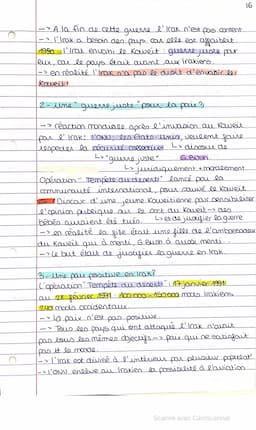 16
-> A la fin de cette guerre l'Irak n'est pas content
-> l'Irak a besoin des pays car elle est affaiblit
1990 l'Irak envahi le Koweit : guerre juste pour
eux, car le pays était avant aux irakiens.
-> en réalité l'Irak n'a pas le droit d'envahir le
Koweit!
2 - Une "guerre juste" pour la paix?
-> réaction mondiale après l'invasion du Koweit
par l'Irak: les Etats Unis, veulent faire
respecter la sécurité collective ↳ discours de
↳ "guerre juste" G. Bush
↳ juridiquement + moralement
Opération "Tempête du désert" lancé par la
communauté international, pour sauvé le Koweit
Discour d'une jeune Koweitienne pour sensibiliser
l'opinion publique sur le sort du Koweit -> des
bébés auraient été tués. ↳ et de justifier la guerre
-> en réalité la fille était une fille de l'ambassadeur
du Koweit qui à menti, G Bush à aussi menti.
-> le but était de justifier la guerre en Irak
3 - Une paix positive en Irak?
L'opération "Tempête du désert" : 17 janvier 1991
au 28 février 1991 : 100 000 - 150 000 morts Irakiens
240 morts occidentaux
-> la paix n'est pas positive.
-> Tous les pays qui ont attaqué l'Irak n'avait
pas tous les mêmes objectifs -> paix qui ne satisfait
pas tt le monde.
-> l'Irak est divisé à l'intérieur par plusieur
-> l'ONU enlève au Irakien la possibilité d'aviation
Scanné avec CamScanner